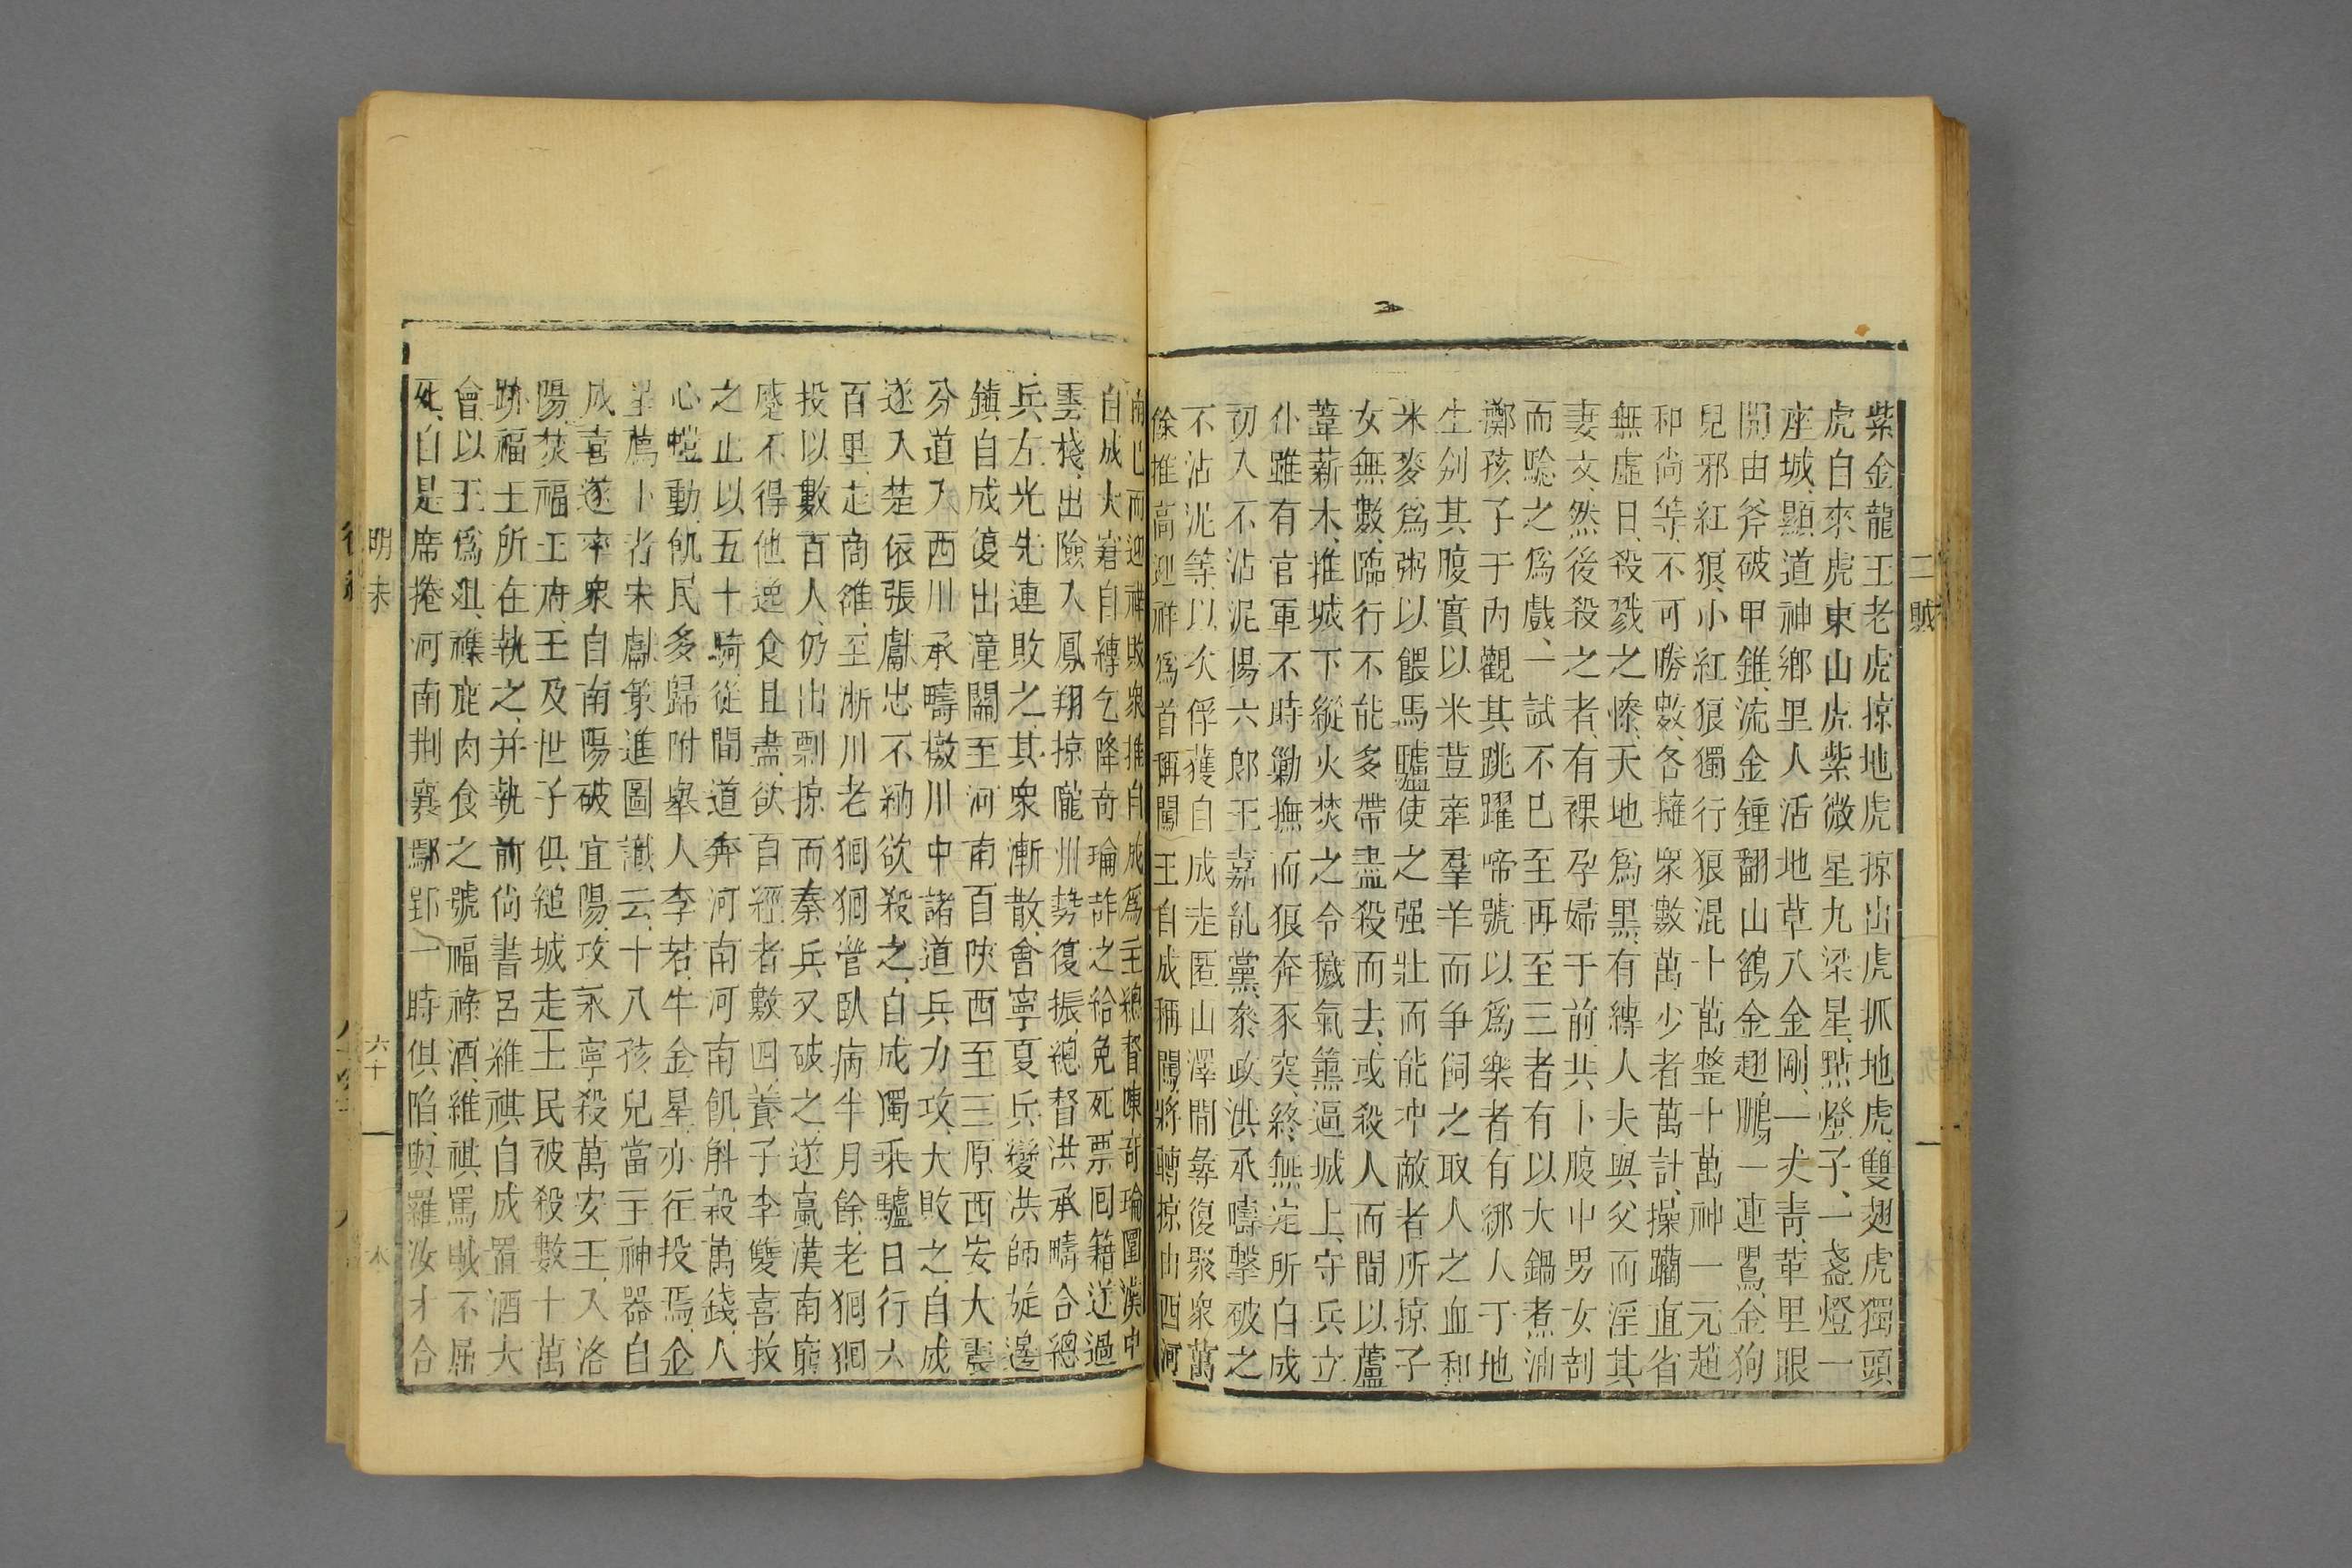 二賊
紫金龍王老虎掠地虎掠出虎抓地虎雙翅虎獨頭
虎白來虎東山虎紫微星九梁星點燈子一盞燈一
座城顯道神鄉里人活地草八金剛一丈靑革里眼
開由斧破甲錐流金錘翻山鷂金翅鵬一連鷹金狗
兒邪紅狼小紅狼獨行狼混十萬整十萬神一元趙
和尙等不可勝數各擁衆數萬少者萬計操躪直省
無虛日殺戮之慘天地爲黑有縛人夫與父而淫其
妻女然後殺之者有裸孕婦于前共卜腹中男女剖
而驗之爲戲一試不已至再至三者有以大鍋煮油
擲孩子于內觀其跳躍啼號以爲樂者有綁人于地
生刳其腹實以米荳牽羣羊而爭飼之取人之血和
米麥爲粥以餵馬驢使之强壯而能冲敵者所掠子
女無數臨行不能多帶盡殺而去或殺人而間以蘆
葦薪木推城下縱火焚之令穢氣薰逼城上守兵立
仆雖有官軍不時勦撫而狼奔豕突終無定所自成
初入不沾泥楊六郎王嘉亂黨叅政洪承疇擊破之
不沾泥等以次俘獲自成走匿山澤間彝復聚衆萬
餘推高迎祥爲首稱闖王自成稱闖將轉掠山西河
南已而迎祥敗衆推自成爲主總督陳奇瑜圍漢中
自成大窘自縛乞降奇瑜詐之給免死票囘籍迯過
雲棧出險入鳳翔掠隴州勢復振總督洪承疇合總
兵左光先連敗之其衆漸散會寧夏兵變洪師旋邊
鎮自成復出潼關至河南百陝西至三原西安大震
分道入西川承疇檄川中諸道兵力攻大敗之自成
遂入楚依張獻忠不納欲殺之自成獨乘驢日行六
百里走商雒至淅川老𢌞𢌞營臥病半月餘老𢌞𢌞
投以數百人仍出剽掠而秦兵又破之遂竄漢南窮
蹙不得他逸食且盡欲自經者數四養子李雙喜救
之止以五十騎從間道奔河南河南飢斛穀萬錢人
心蠢動飢民多歸附舉人李若牛金星亦往投焉企
星薦卜者宋獻策進圖讖云十八孩兒當主神器自
成喜遂率衆自南陽破宜陽攻永寧殺萬安王入洛
陽焚福王府王及世子俱縋城走王民被殺數十萬
跡福王所在執之并執前尙書呂維祺自成置酒大
會以王爲俎襍鹿肉食之號福祿酒維祺罵賊不屈
死自是席捲河南荆襄鄢郢一時俱陷與羅汝才合
明末
六十